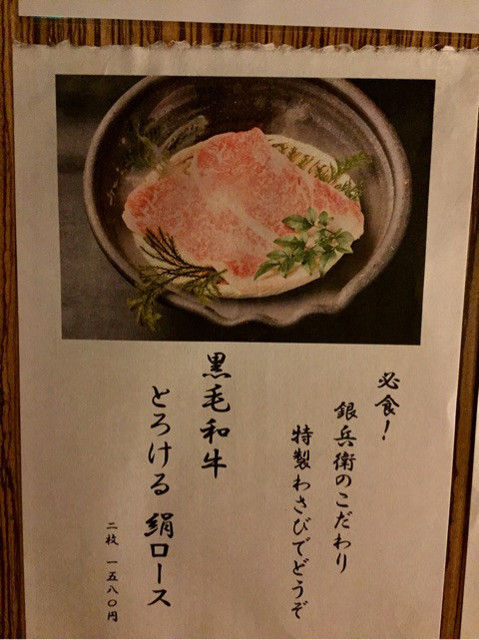 必食！
銀兵衛のこだわり
特製わさびでどうぞ
黒毛和牛
とろける 絹ロース
二枚 一五八〇円